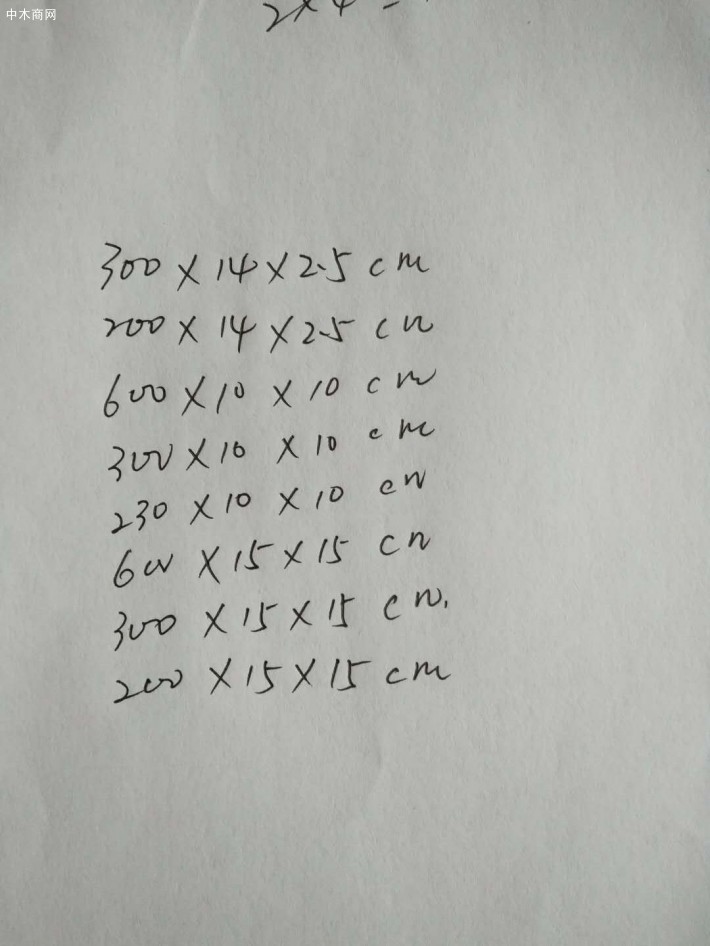 中木商网
2×4
300×14×2.5 cm
200×14×2.5 cm
600×10×10 cm
300×10×10 cm
230×10×10 cm
600×15×15 cm
300×15×15 cm.
200×15×15 cm